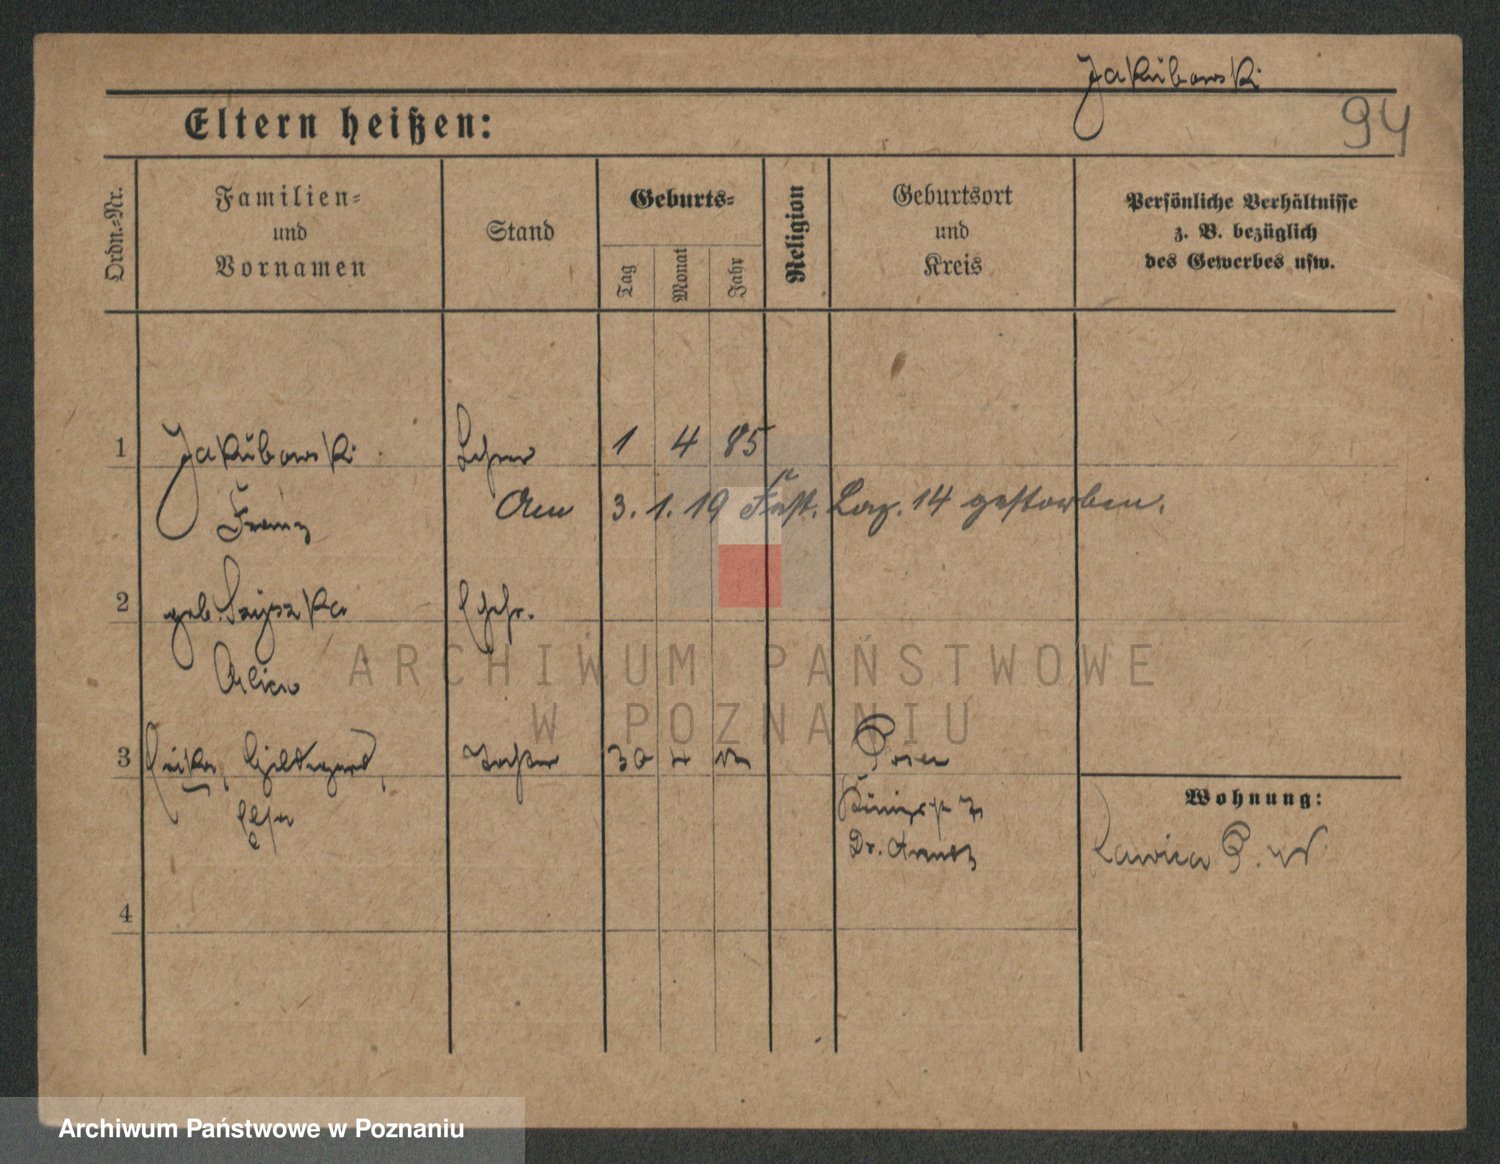 Jakubowski
94
Eltern heißen:
Ordn.-Nr.
Familien-
und
Vornamen
Stand
Geburts-
Tag
Monat
Jahr
Religion
Geburtsort
und
Kreis
Persönliche Verhältnisse
z. B. bezüglich
des Gewerbes usw.
1 Jakubowski Lehrer 1 4 85
Franz Am 3.1.19 Fest. Laz. 14 gestorben.
2 geb. Ehefr.
Alice
3 Hildegard, Tochter 30 Posen
Else
Dr.
Wohnung:
Lawica P. W
4
ARCHIWUM PAŃSTWOWE
W POZNANIU
Archiwum Państwowe w Poznaniu